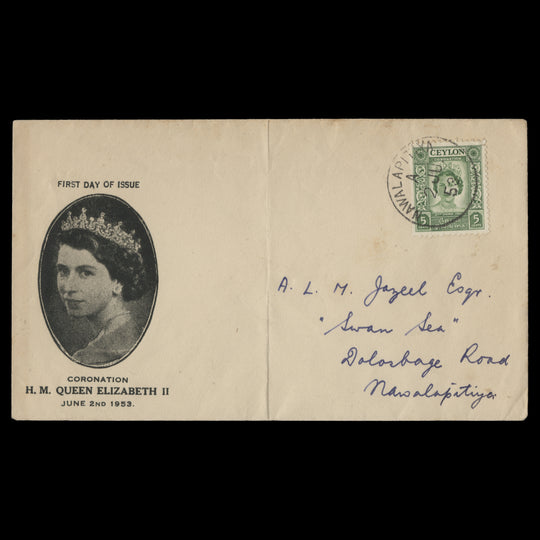 FIRST DAY OF ISSUE
CORONATION
H. M. QUEEN ELIZABETH II
JUNE 2ND 1953.
NAWALAPITIYA
A
2 JU
53
CEYLON
5 5
A. L. M. Jazeel Esqr.
"Swan Sea"
Dolosbage Road
Nawalapitiya